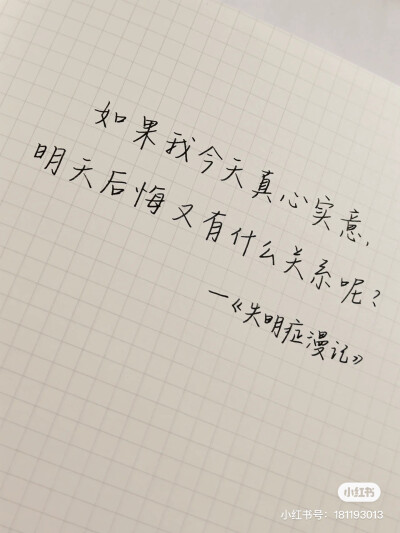 如果我今天真心实意,
明天后悔又有什么关系呢?
—《失明症漫记》
小红书
小红书号: 181193013